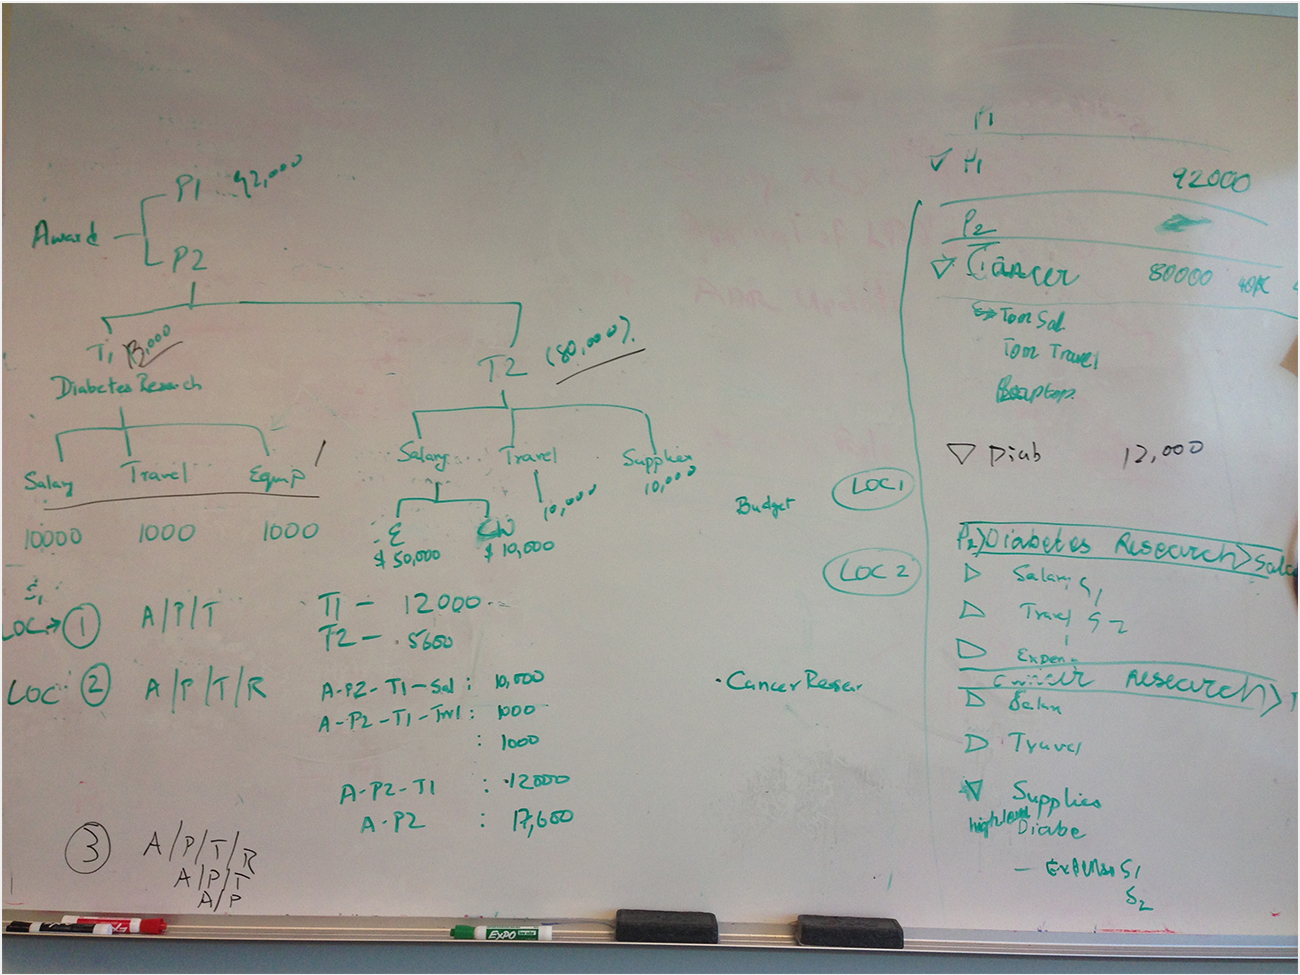 Award
P1 92,000
P2
T1
Diabetes Research
Salary Travel Equip
10000 1000 1000
T2 (80,000)
Salary Travel Supplies
10,000 10,000
E CW
$ 50,000 $ 10,000
LOC → 1 A/P/T
T1 - 12000
T2 - 5600
LOC 2 A/P/T/R
A-P2-T1-Sal : 10,000
A-P2-T1-Trvl : 1000
: 1000
A-P2-T1 : 12000
A-P2 : 17,600
3 A/P/T/R
A/P/T
A/P
Budget
LOC 1
LOC 2
Cancer Resear
P1
P1 92000
P2
Cancer 80000 40K
Tom Sal
Tom Travel
Laptop
Diab 12,000
P2>Diabetes Research>
Salary S1
Travel S2
Research>
Travel
Supplies
high level
Diabe
- S1
S2
EXPO